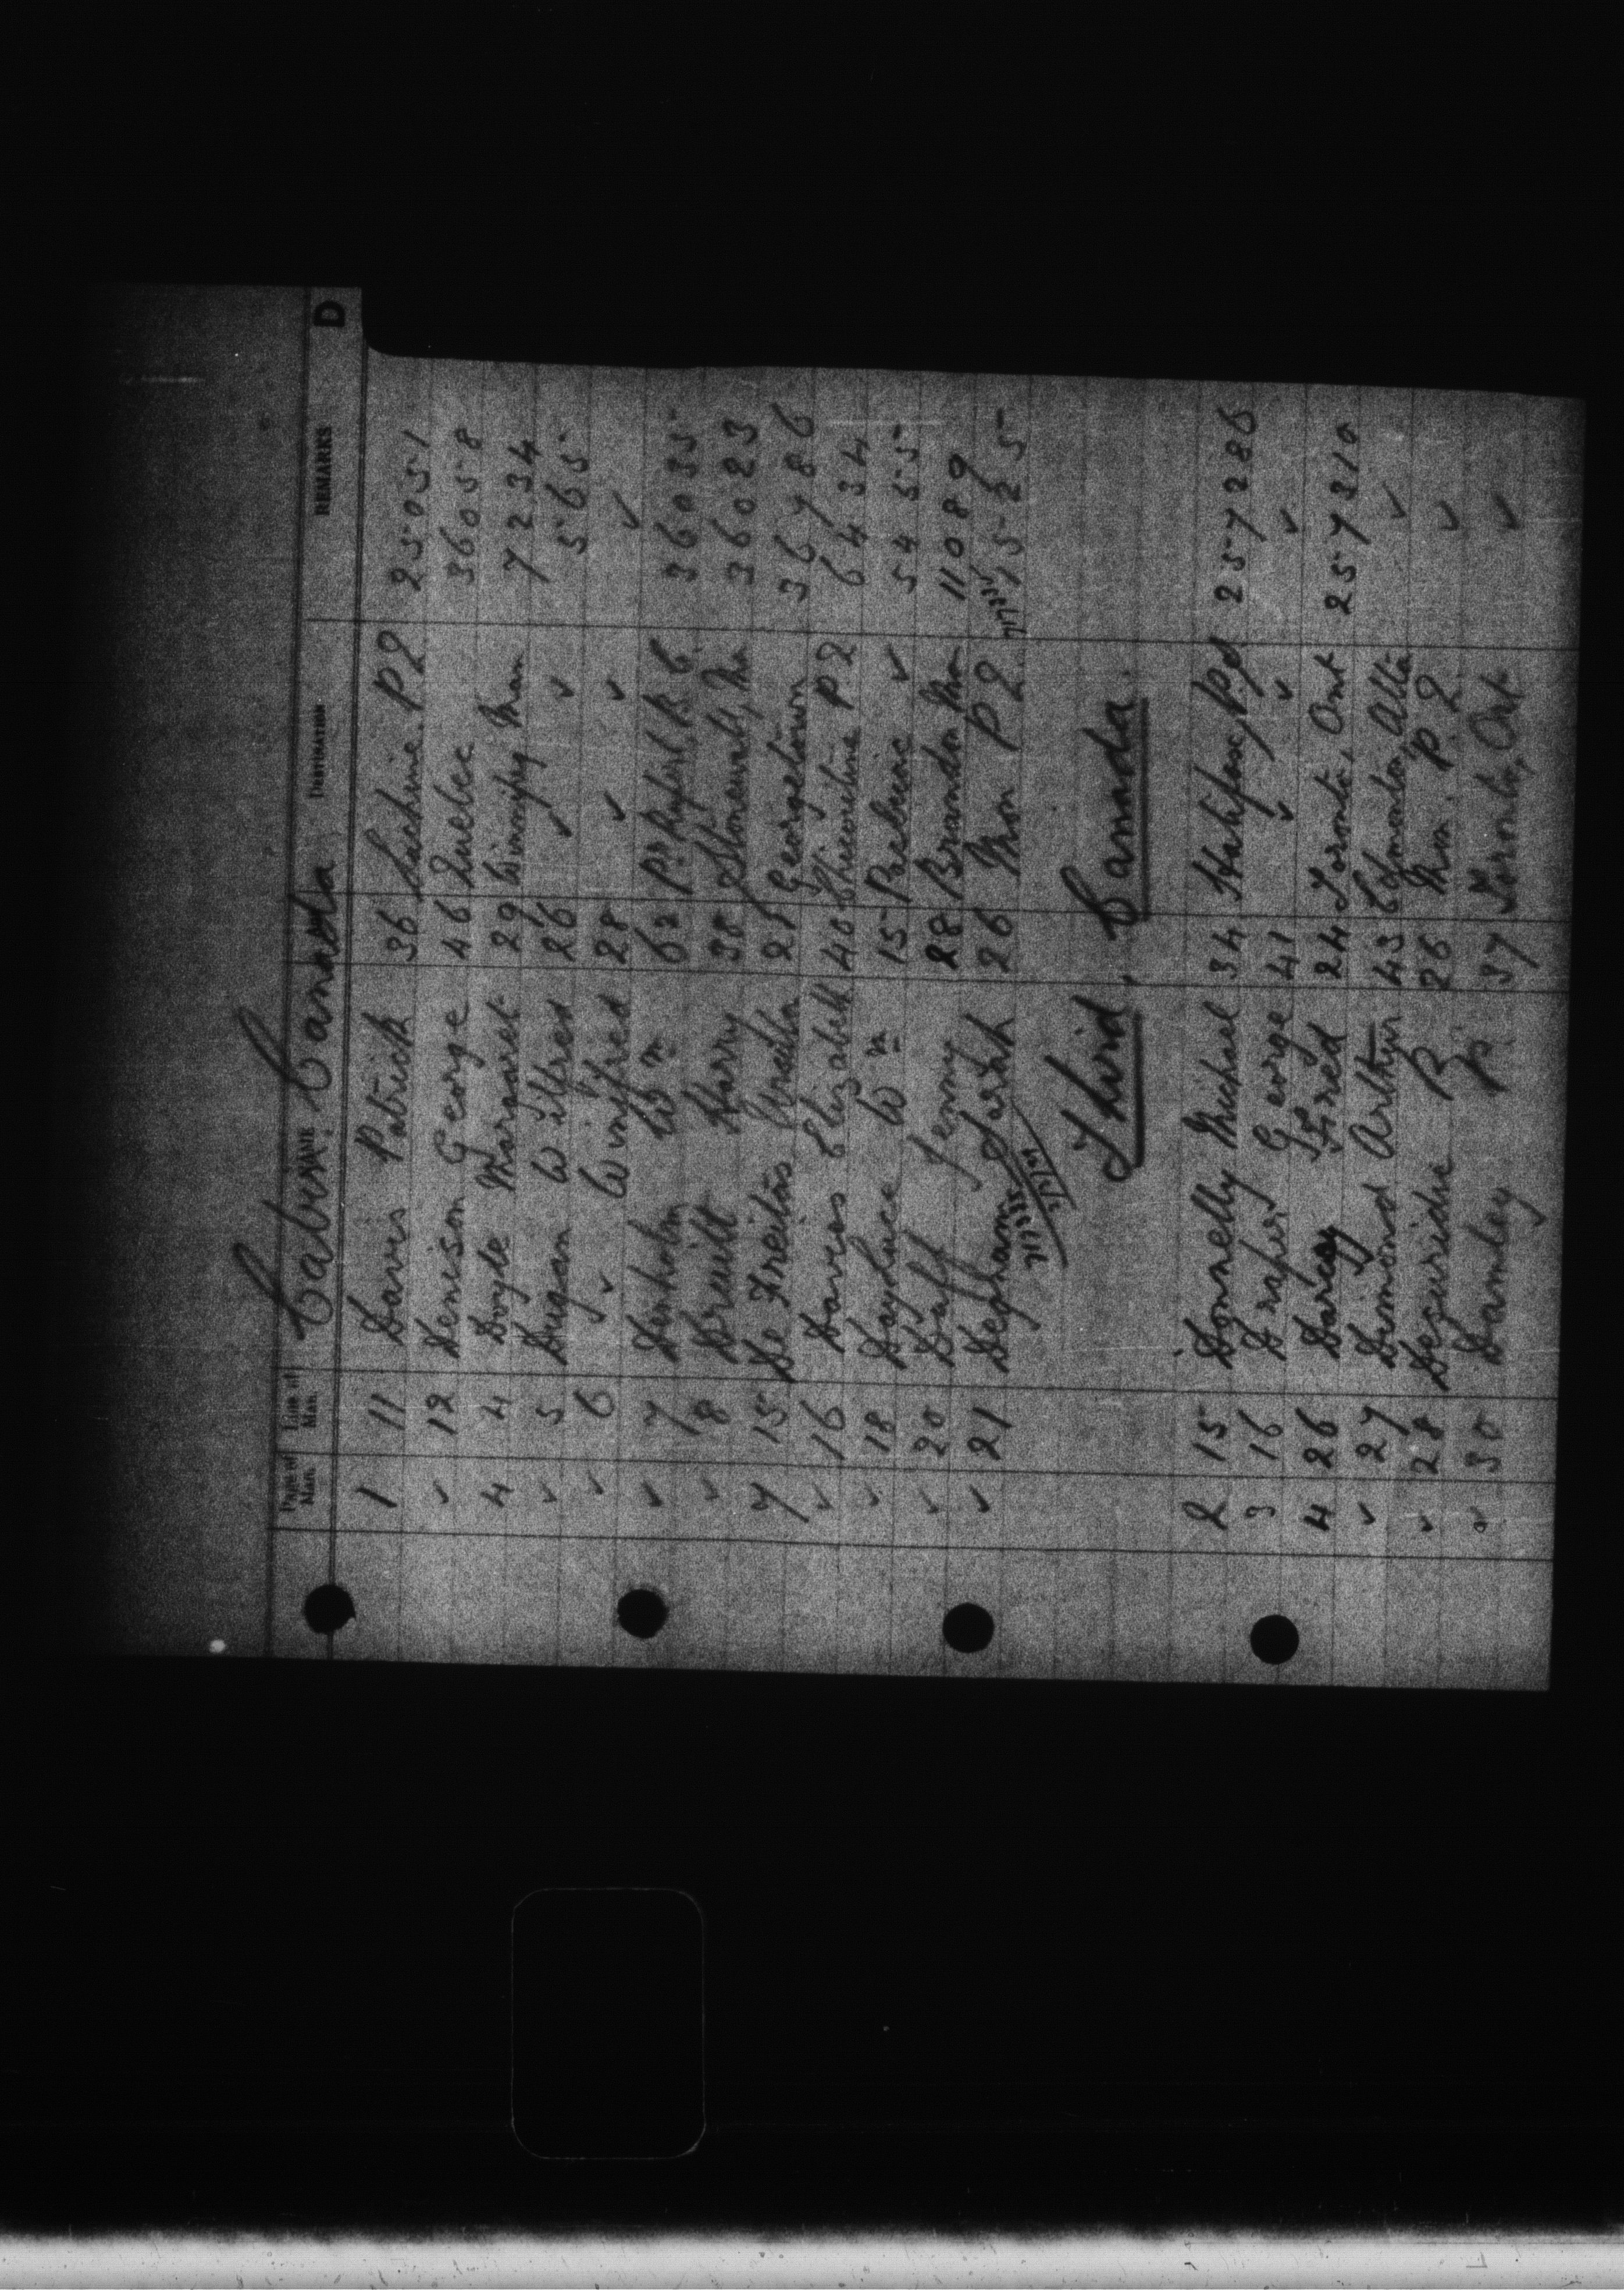 Cabin Canada
Page of Man. Line of Man. NAME DESTINATION REMARKS D
1 11 Davis Patrick 36 Lachine P2 25051
✓ 12 Denison George 46 Quebec 36058
4 4 Doyle Margaret 29 Winnipeg Man 7234
✓ 5 Dugan Wilfred 26 ✓ ✓ 5565
✓ 6 ✓ Winifred 28 ✓ ✓ ✓
✓ 7 Denholm Wm 62 Pr Rupert B.C. 36035
✓ 8 Harry 38 Stonewall, Man 36023
7 15 De Freitas 25 Georgetown 36786
✓ 16 Davies Elizabeth 40 P.2 6434
✓ 18 Wm 15 ✓ 5455
✓ 20 Duff Jenny 28 Brandon Man 11089
✓ 21 Degham Sarah 26 Mon P2. 15265
Third, Canada.
2 15 Donnelly Michael 34 Halifax, P.2 257286
3 16 Draper George 41 ✓ ✓ ✓
4 26 Darcy Fred 24 Toronto, Ont 257310
✓ 27 Dimond Arthur 43 Edmonton, Alta ✓
✓ 28 B 26 Mon. P.2. ✓
30 Damley 37 Toronto, Ont ✓